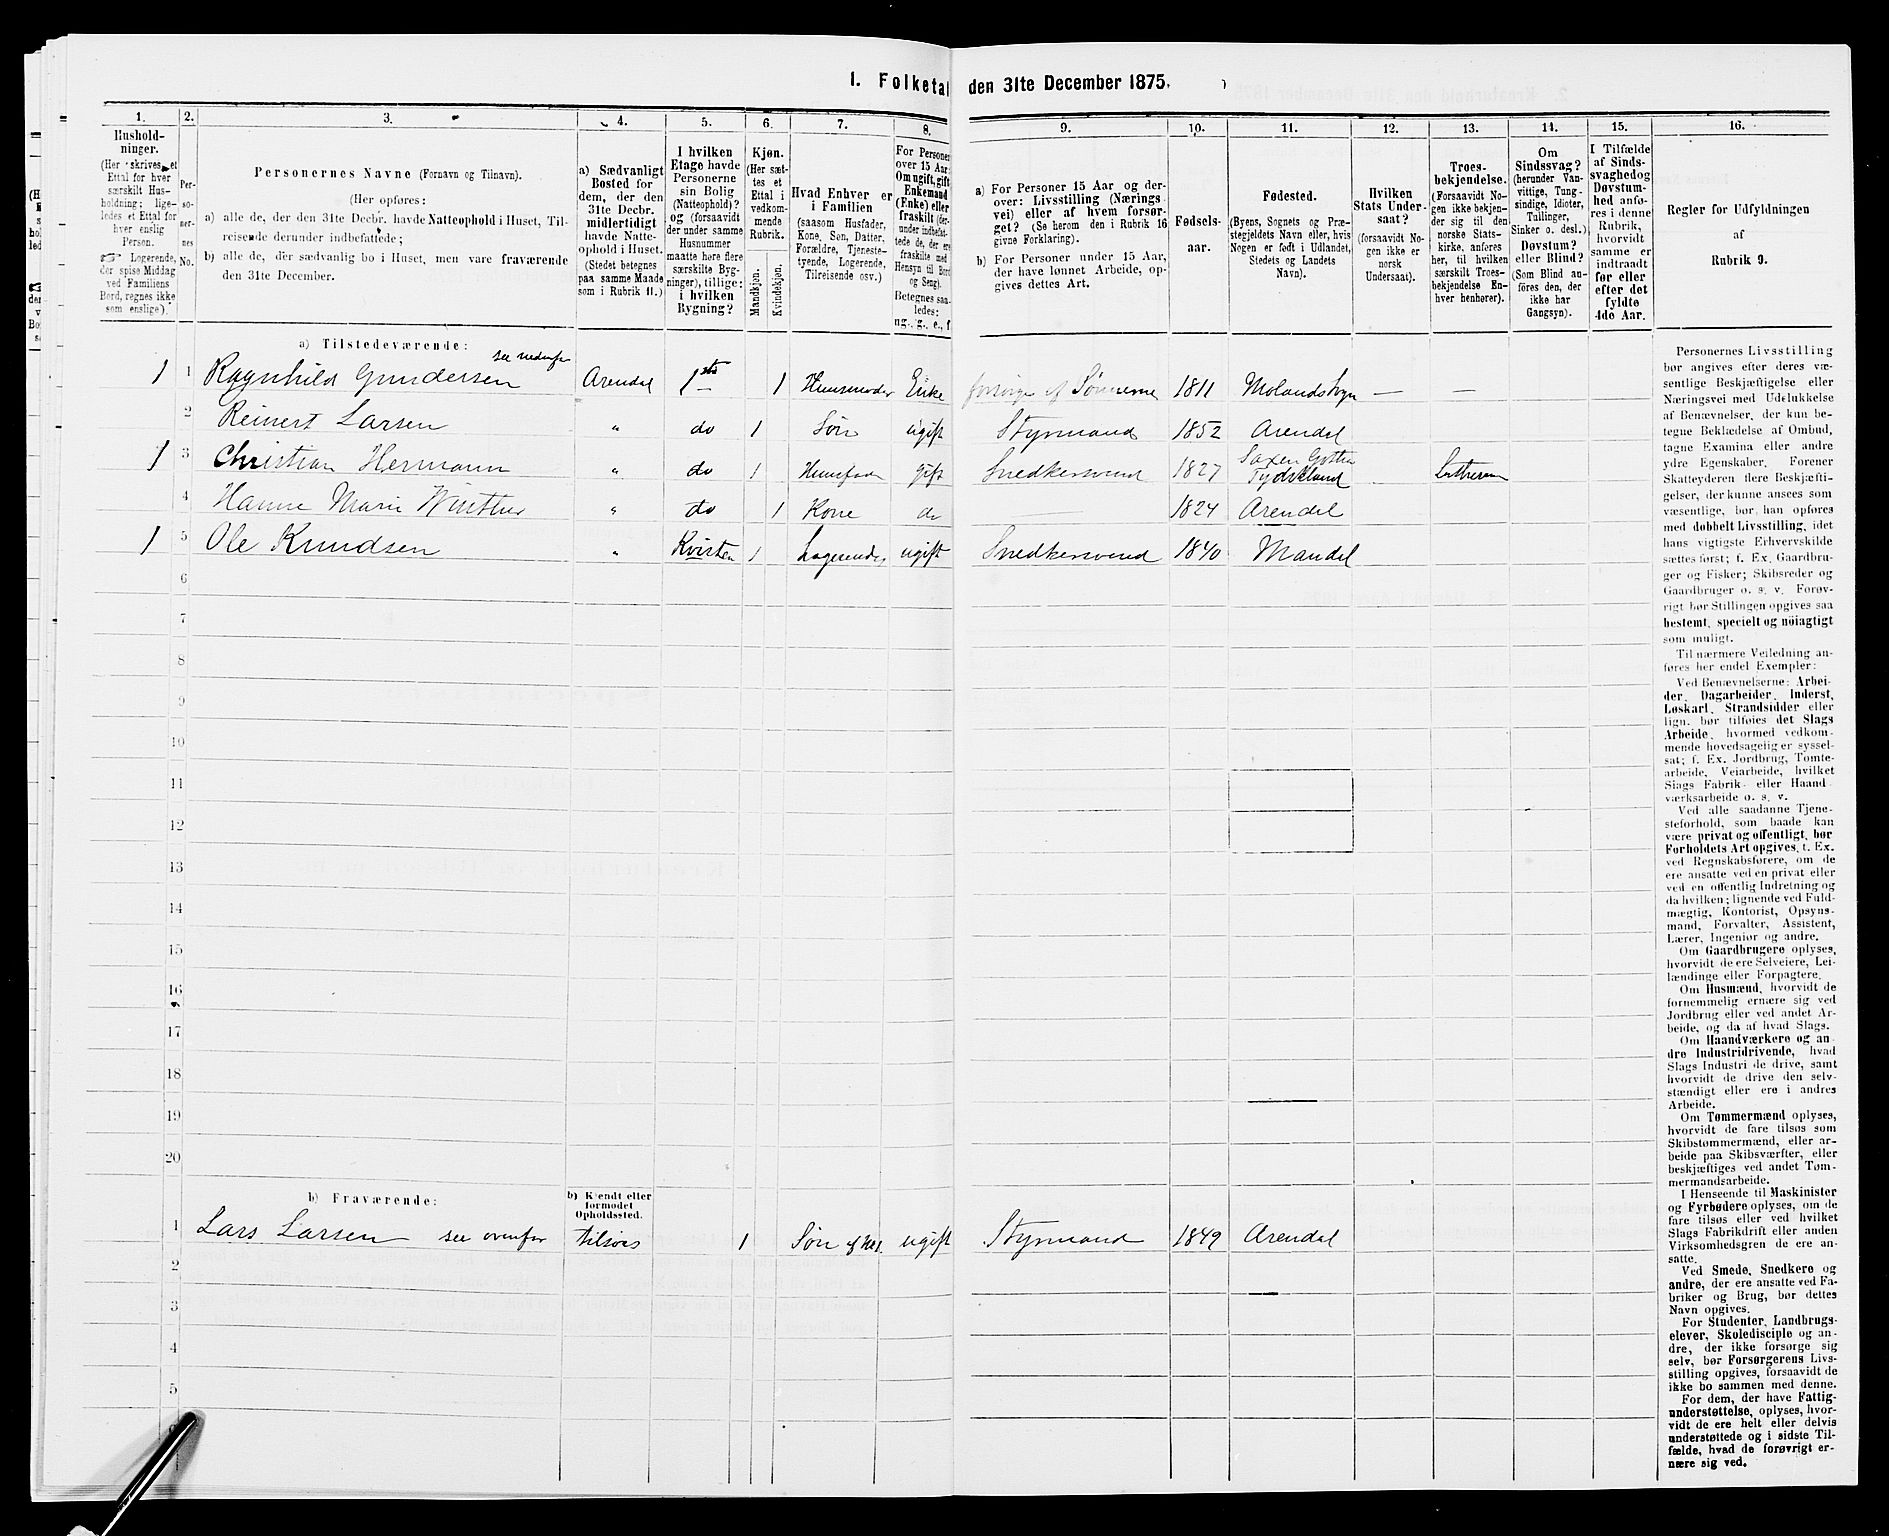 1. Folketal den 31te December 1875.
1.
Hushold-
ninger.
(Her skrives et
Ettal for hver
særskilt Hus-
holdning; lige-
ledes et Ettal for
hver enslig
Person.
Logerende,
der spise Middag
ved Familiens
Bord, regnes ikke
som enslige).
2.
Per-
so-
ner-
nes
No.
3.
Personernes Navne (Fornavn og Tilnavn).
(Her opføres:
a) alle de, der den 31te Decbr. havde Natteophold i Huset, Til-
reisende derunder indbefattede;
b) alle de, der sædvanlig bo i Huset, men vare fraværende
den 31te December.
4.
a) Sædvanligt
Bosted for
dem, der den
31te Decbr.
midlertidigt
havde Natte-
ophold i Huset.
(Stedet betegnes
paa samme Maade
som i Rubrik 11.)
5.
I hvilken
Etage havde
Personerne
sin Bolig
(Natteophold)?
og (forsaavidt
der under samme
Husnummer
maatte høre flere
særskilte Byg-
ninger), tillige:
i hvilken
Bygning?
6.
Kjøn.
(Her sæt-
tes et
Ettal i
vedkom-
mende
Rubrik.
Mandkjøn.
Kvindekjøn.
7.
Hvad Enhver er
i Familien
(saasom Husfader,
Kone, Søn, Datter,
Forældre, Tjeneste-
tyende, Logerende,
Tilreisende osv.)
8.
For Personer
over 15 Aar:
Om ugift, gift,
Enkemand
(Enke) eller
fraskilt (der-
under indbefat-
tede de, der ere
fraskilte med
Hensyn til Bord
og Seng).
Betegnes saa-
ledes:
ug., g., e., f.
9.
a) For Personer 15 Aar og der-
over: Livsstilling (Nærings-
vei) eller af hvem forsør-
get? (Se herom den i Rubrik 16
givne Forklaring).
b) For Personer under 15 Aar,
der have lønnet Arbeide, op-
gives dettes Art.
10.
Fødsels-
aar.
11.
Fødested.
(Byens, Sognets og Præ-
stegjeldets Navn eller, hvis
Nogen er født i Udlandet,
Stedets og Landets
Navn).
12.
Hvilken
Stats Under-
saat?
(forsaavidt No-
gen ikke er
norsk
Undersaat).
13.
Troes-
bekjendelse.
(Forsaavidt No-
gen ikke bekjen-
der sig til den
norske Stats-
kirke, anføres
her, til hvilken
særskilt Troes-
bekjendelse En-
hver henhører).
14.
Om
Sindssvag?
(herunder Van-
vittige, Tung-
sindige, Idioter,
Tullinger,
Sinker o. desl.)
Døvstum?
eller Blind?
(Som Blind an-
føres den, der
ikke har
Gangsyn).
15.
I Tilfælde
af Sinds-
svaghed og
Døvstum-
hed anfø-
res i denne
Rubrik,
hvorvidt
samme er
indtraadt
før eller
efter det
fyldte
4de Aar.
16.
Regler for Udfyldningen
af
Rubrik 9.
a) Tilstedeværende:
1 1 Ragnhild Gundersen see nedenfor Arendal 1ste 1 Huusmoder Enke forsørges af Sønnerne 1811 Molands Sogn — —
2 Reinert Larsen " do 1 Søn ugift Styrmand 1852 Arendal
1 3 Christian Hermann " do 1 Huusfader gift Snedkersvend 1827 Saxen Gotha Tydskland Lutheran
4 Hanne Marie Winther " do 1 Kone do 1824 Arendal
1 5 Ole Knudsen " Kvisten 1 Logerende ugift Snedkersvend 1840 Mandal
6
7
8
9
10
11
12
13
14
15
16
17
18
19
20
b) Fraværende:
b) Kjendt eller
formodet
Opholdssted.
1 Lars Larsen see ovenfor tilsøes 1 Søn af No 1 ugift Styrmand 1849 Arendal
2
3
4
5
Personernes Livsstilling
bør angives efter deres væ-
sentlige Beskjæftigelse eller
Næringsvei med Udelukkelse
af Benævnelser, der kun be-
tegne Beklædelse af Ombud,
tagne Examina eller andre
ydre Egenskaber. Forener
Skatteyderen flere Beskjæfti-
gelser, der kunne ansees som
væsentlige, bør han opføres
med dobbelt Livsstilling, idet
hans vigtigste Erhvervskilde
sættes først; f. Ex. Gaardbru-
ger og Fisker; Skibsreder og
Gaardbruger o. s. v. Forøv-
rigt bør Stillingen opgives saa
bestemt, specielt og nöiagtigt
som muligt.
Til nærmere Veiledning an-
føres her endel Exempler:
Ved Benævnelserne: Arbei-
der, Dagarbeider, Inderst,
Løskarl, Strandsidder eller
lign. bør tilføies det Slags
Arbeide, hvormed vedkom-
mende hovedsagelig er syssel-
sat; f. Ex. Jordbrug, Tomte-
arbeide, Veiarbeide, hvilket
Slags Fabrik- eller Haand-
værksarbeide o. s. v.
Ved alle saadanne Tjene-
steforhold, som baade kan
være privat og offentligt, bør
Forholdets Art opgives, t. Ex.
ved Regnskabsførere, om de
ere ansatte ved en privat eller
ved en offentlig Indretning og
da hvilken; lignende ved Fuld-
mægtig, Kontorist, Opsyns-
mand, Forvalter, Assistent,
Lærer, Ingeniør og andre.
Om Gaardbrugere oplyses,
hvorvidt de ere Selveiere, Lei-
lændinge eller Forpagtere.
Om Husmænd, hvorvidt de
fornemmelig ernære sig ved
Jordbrug eller ved andet Ar-
beide, og da af hvad Slags.
Om Haandværkere og an-
dre Industridrivende, hvad
Slags Industri de drive, samt
hvorvidt de drive den selv-
stændigt eller ere i andres
Arbeide.
Om Tømmermænd oplyses,
hvorvidt de fare tilsøs som
Skibstømmermænd, eller ar-
beide paa Skibsværfter, eller
beskjæftiges ved andet Tøm-
mermandsarbeide.
I Henseende til Maskinister
og Fyrbødere oplyses, om de
fare tilsøs eller ved hvilket
Slags Fabrikdrift eller anden
Virksomhedsgren de ere an-
satte.
Ved Smede, Snedkere og
andre, der ere ansatte ved Fa-
briker og Brug, bør dettes
Navn opgives.
For Studenter, Landbrugs-
elever, Skoledisciple og an-
dre, der ikke forsørge sig
selv, bør Forsørgerens Livs-
stilling opgives, forsaavidt de
ikke bo sammen med denne.
For dem, der have Fattig-
understøttelse, oplyses, hvor-
vidt de ere helt eller delvis
understøttede og i sidste Til-
fælde, hvad de forøvrigt er-
nære sig ved.